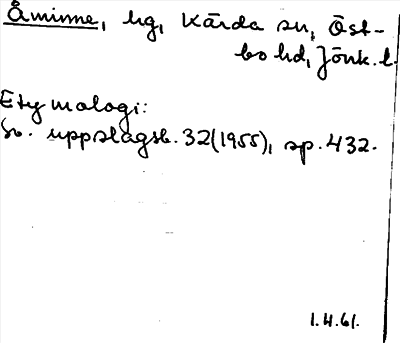 Åminne, hg, Kärda sn, Öst-
bo hd, Jönk. l.
Etymologi:
Sv. uppslagsb. 32(1955), sp. 432.
1.4.61.